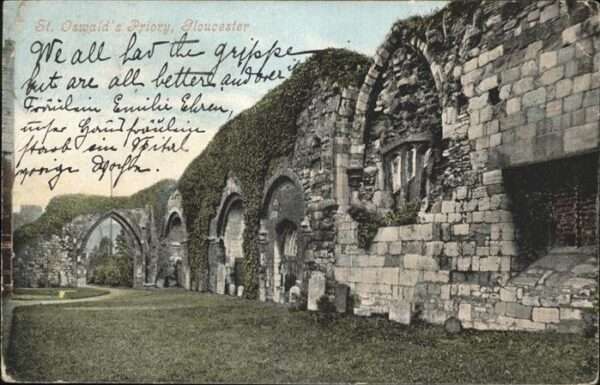 St. Oswald's Priory, Gloucester
We all had the grippe
but are all better, and over"
Fräulein Emilie Ehren,
unser Hausfräulein
starb im Spital
vorige Woche.